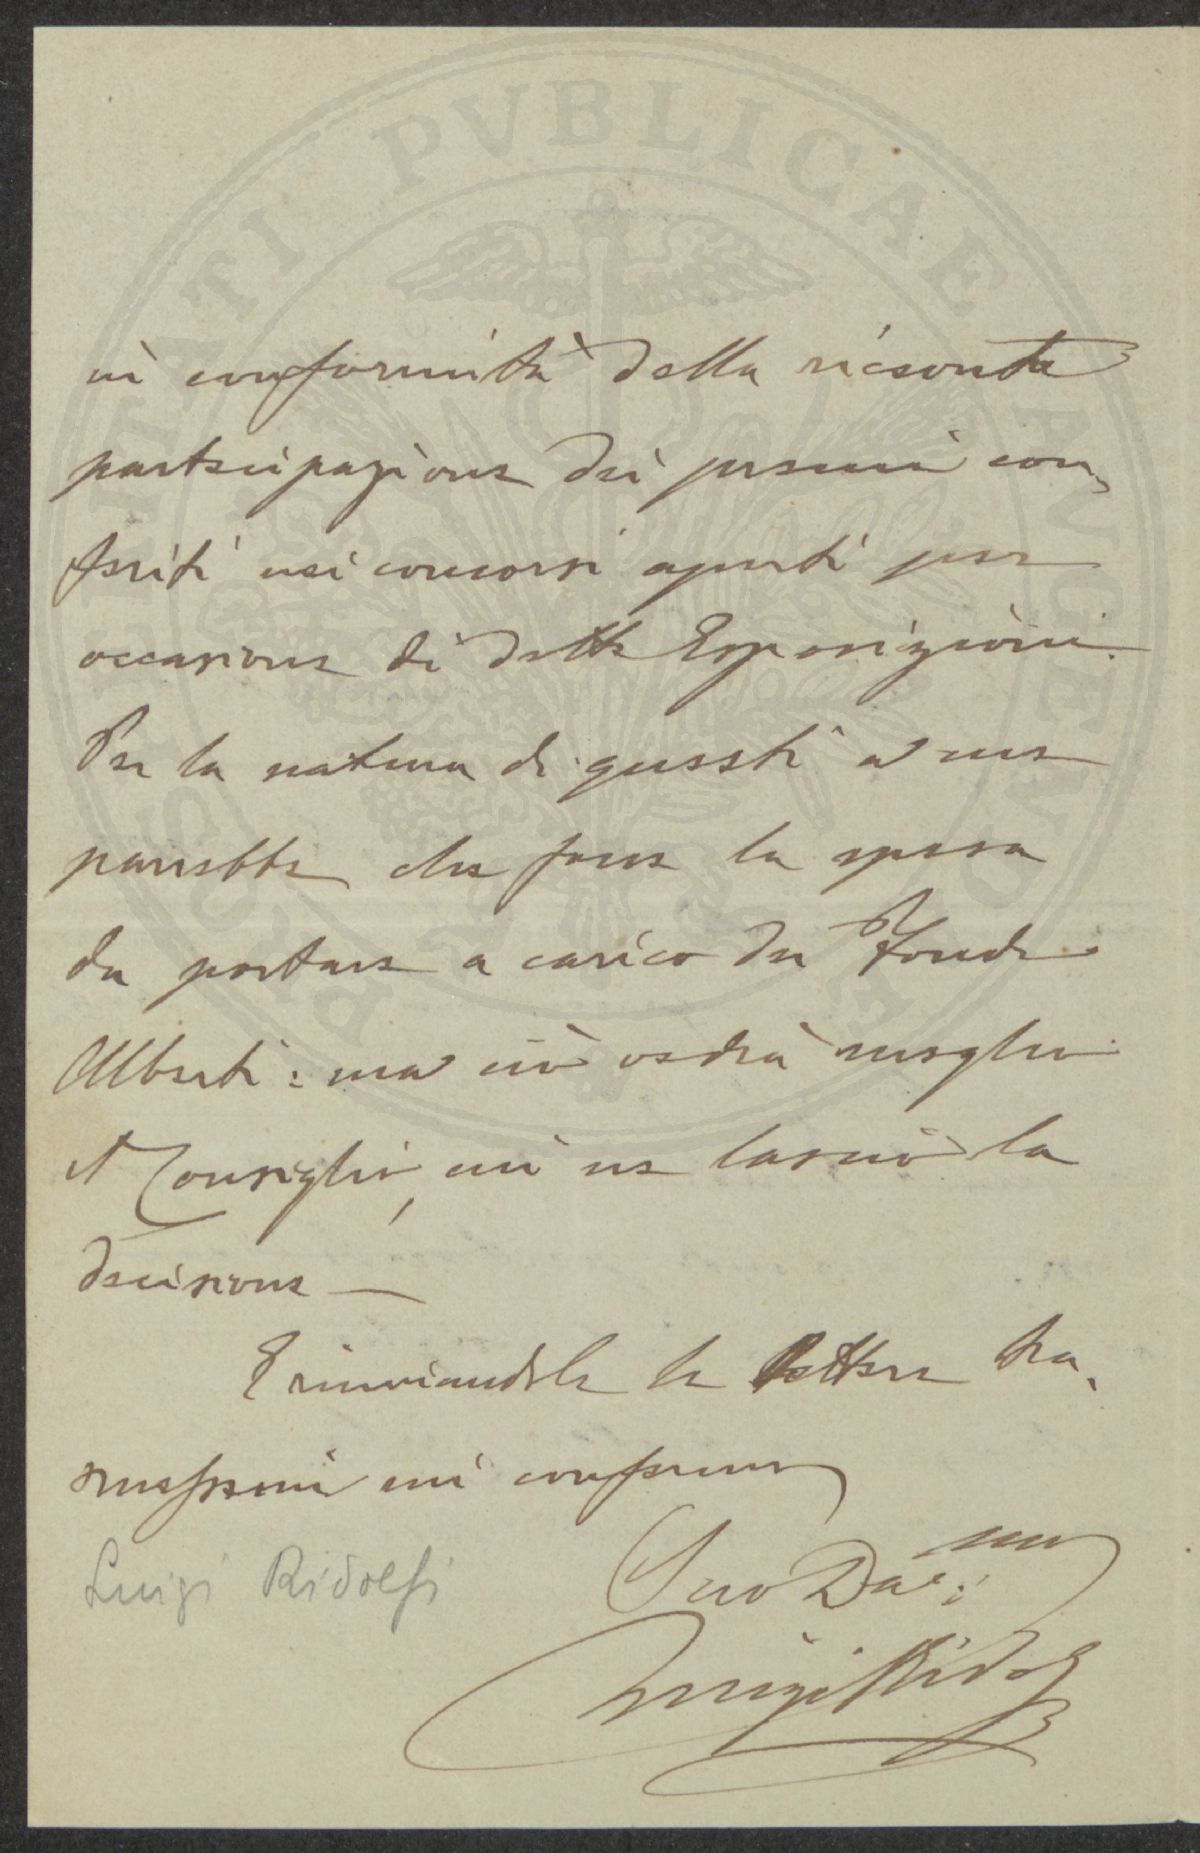 PROSPERITATI PVBLICAE AVGENDAE
in conformità della ricevuta
partecipazione dei premi con,
feriti nei concorsi aperti per
occasione di dette Esposizioni.
Per la natura di questi a me
parrebbe che fosse la spesa
da portare a carico del Fondo
Alberti: ma ciò vedrà meglio
il Consiglio, cui ne lascio la
decisione —
E rinviandole le lettere tra,
smessemi mi confermo
Suo Dev.mo
Luigi Ridolfi
Luigi Ridolfi